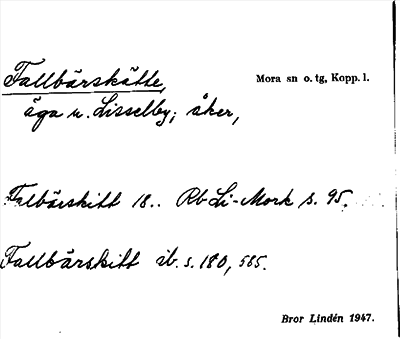 Fallbärskätte, Mora sn o. tg, Kopp. l.
äga u. Lisselby; åker,
Falbärskitt 18.. Rb Li-Mork s. 95.
Fallbärskitt ib. s. 180, 585.
Bror Lindén 1947.